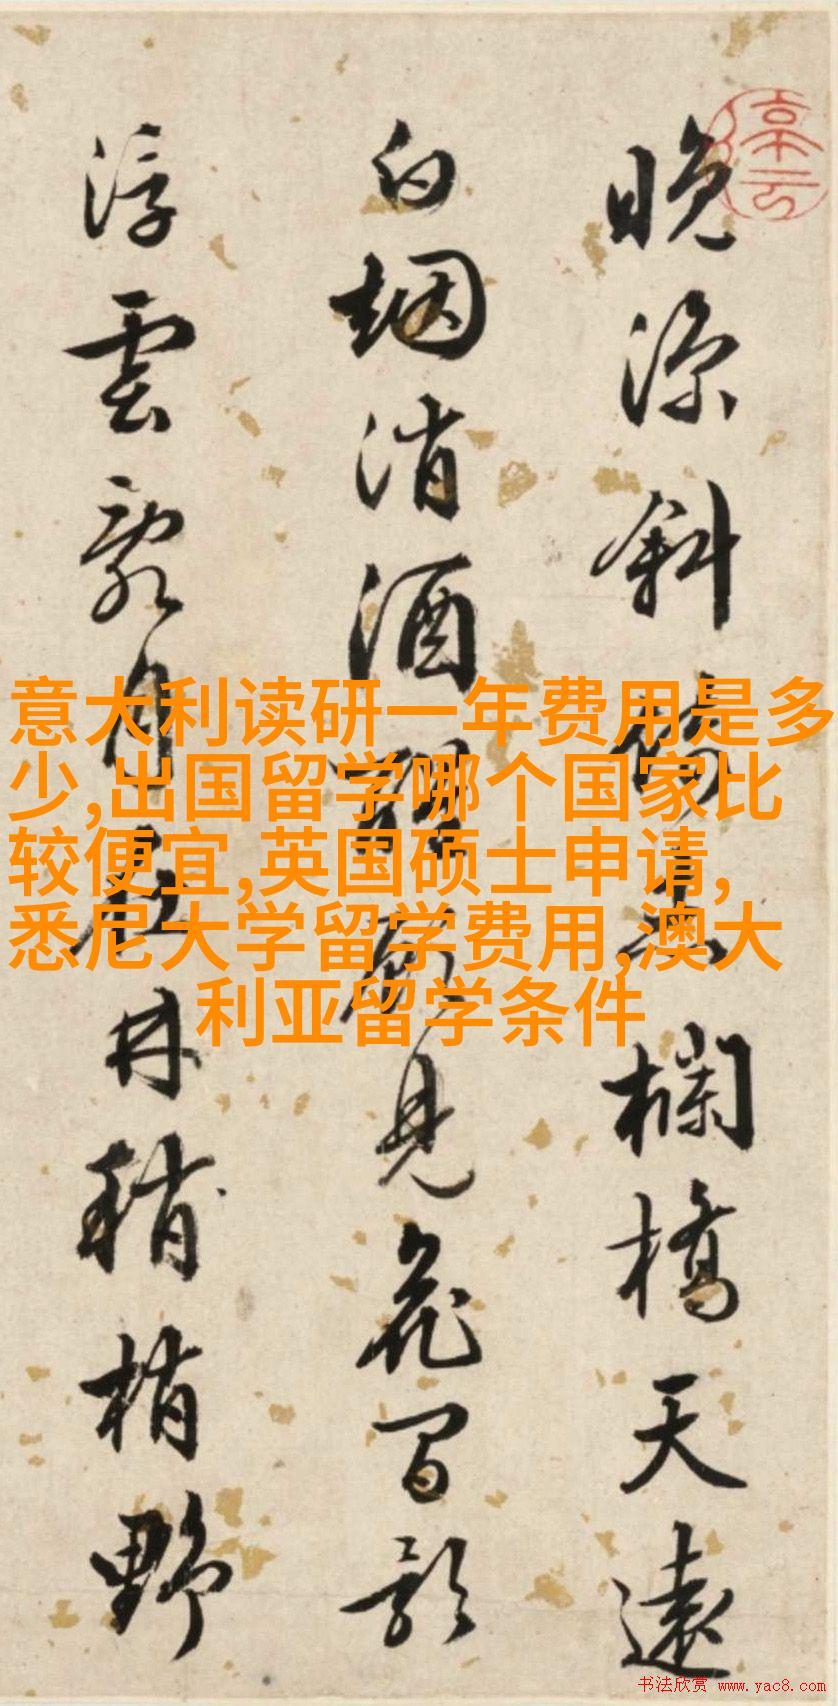 晚涼斜倚欄橋天遠
白烟消酒見花間影
浮雲月林稍梢野
意大利读研一年费用是多
少,出国留学哪个国家比
较便宜,英国硕士申请,
悉尼大学留学费用,澳大
利亚留学条件
书法欣赏 www.yac8.com